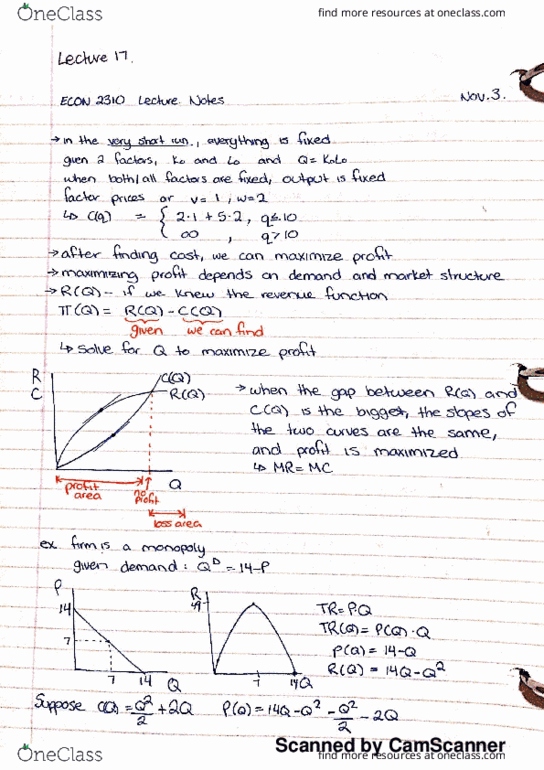 OneClass
find more resources at oneclass.com
Lecture 17.
ECON 2310 Lecture Notes
Nov. 3.
→ in the very short run, everything is fixed
given 2 factors, K₀ and L₀ and Q = K₀L₀
when both/all factors are fixed, output is fixed
factor prices are v = 1, w = 2
↳ C(q) = { 2·1 + 5·2, q ≤ 10
∞, q > 10
→ after finding cost, we can maximize profit
→ maximizing profit depends on demand and market structure
→ R(Q) - if we knew the revenue function
π(Q) = R(Q) - C(Q)
given we can find
↳ solve for Q to maximize profit
R
C
C(Q)
R(Q)
Q
profit area
no profit
loss area
→ when the gap between R(Q) and
C(Q) is the biggest, the slopes of
the two curves are the same,
and profit is maximized
↳ MR = MC
ex. firm is a monopoly
given demand: Qᴰ = 14-P
P
14
7
7
14
Q
R
49
7
14
Q
TR = P·Q
TR(Q) = P(Q)·Q
P(Q) = 14-Q
R(Q) = 14Q-Q²
Suppose C(Q) = Q²/2 + 2Q
P(Q) = 14Q - Q² - Q²/2 - 2Q
Scanned by CamScanner
OneClass
find more resources at oneclass.com